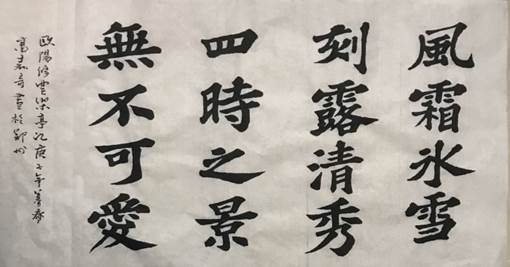 風霜氷雪
刻露清秀
四時之景
無不可愛
歐陽修豐樂亭記庚子年暮春
高嘉奇書於鄭州